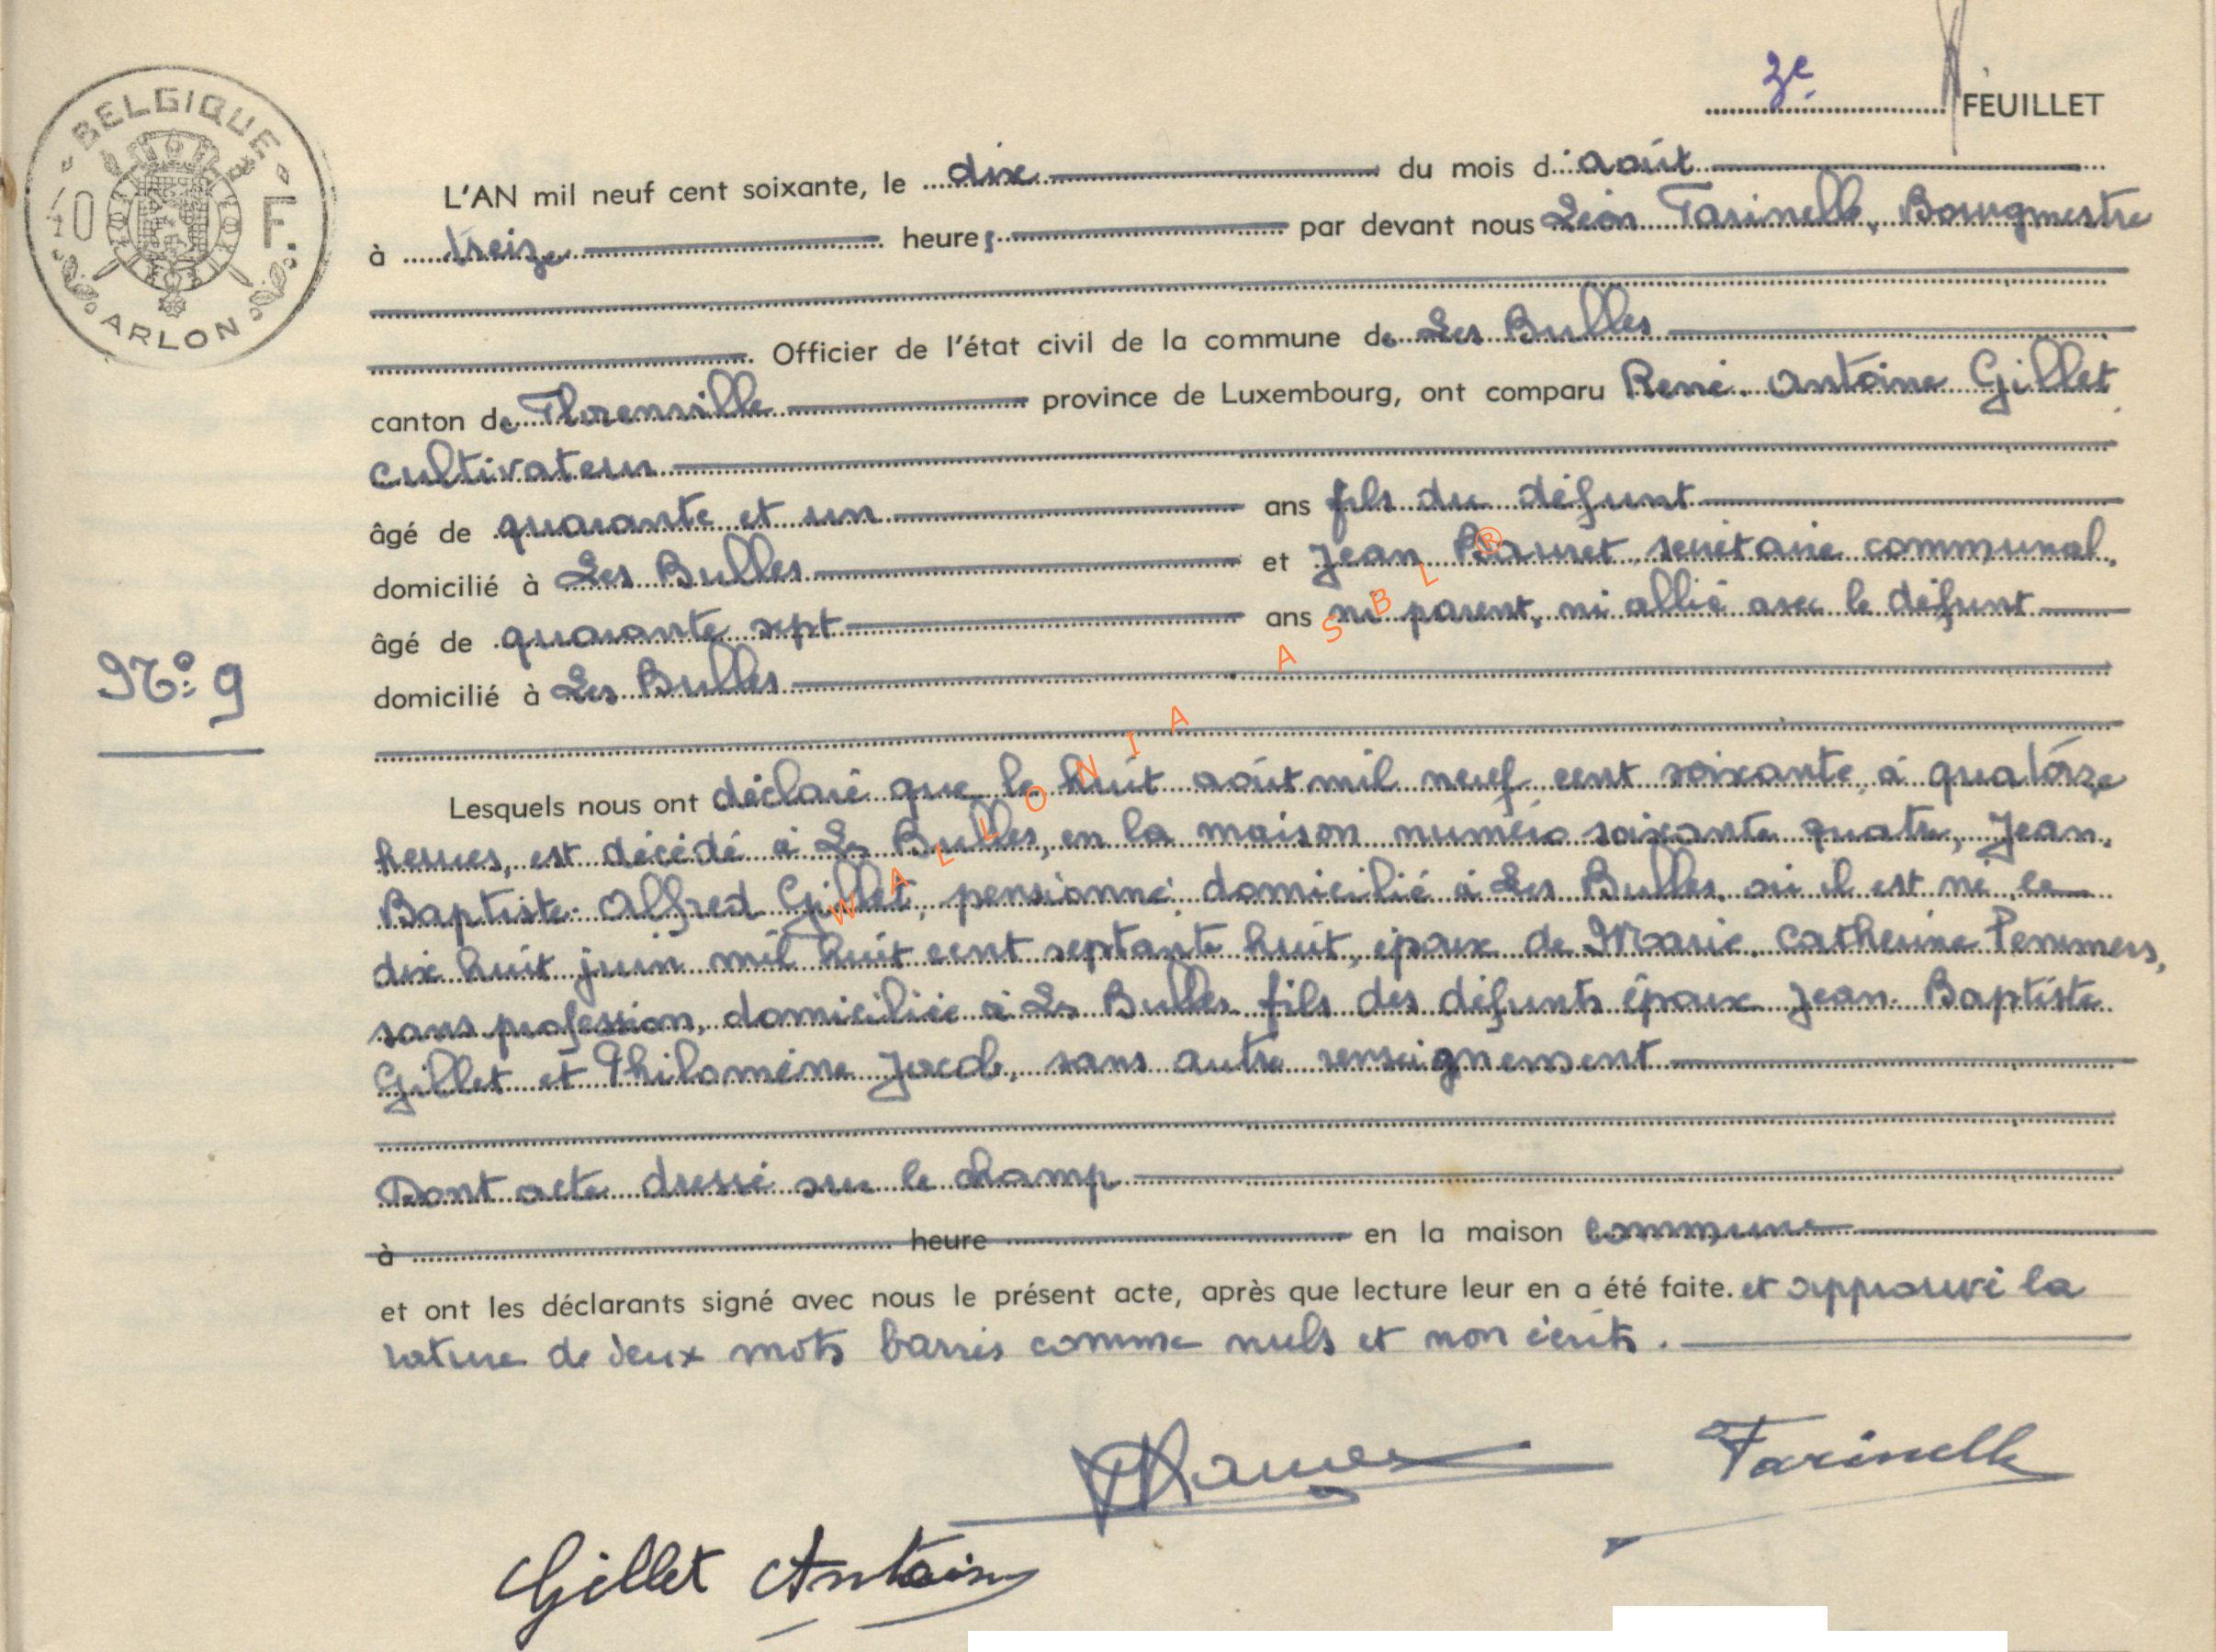 BELGIQUE
40 F.
ARLON
3e FEUILLET
L'AN mil neuf cent soixante, le dix du mois d'août
à treize heures par devant nous Léon Farinelle, Bourgmestre
Officier de l'état civil de la commune de Les Bulles
canton de Florenville province de Luxembourg, ont comparu René-Antoine Gillet
cultivateur
âgé de quarante et un ans fils du défunt
domicilié à Les Bulles et Jean secrétaire communal,
âgé de quarante sept ans ni parent, ni allié avec le défunt
domicilié à Les Bulles
N° 9
Lesquels nous ont déclaré que le huit août mil neuf cent soixante, à quatorze
heures, est décédé à Les Bulles, en la maison numéro soixante quatre, Jean-
Baptiste-Alfred Gillet, pensionné, domicilié à Les Bulles, où il est né le
dix huit juin mil huit cent septante huit, époux de Marie-Catherine
sans profession, domiciliée à Les Bulles, fils des défunts époux Jean-Baptiste
Gillet et Philomène Jacob, sans autre renseignement
Dont acte dressé sur le champ
à heure en la maison commune
et ont les déclarants signé avec nous le présent acte, après que lecture leur en a été faite. et approuvé la
rature de deux mots barrés comme nuls et non écrits.
Farinelle
Gillet Antoine
WALLONIA ASBL ®